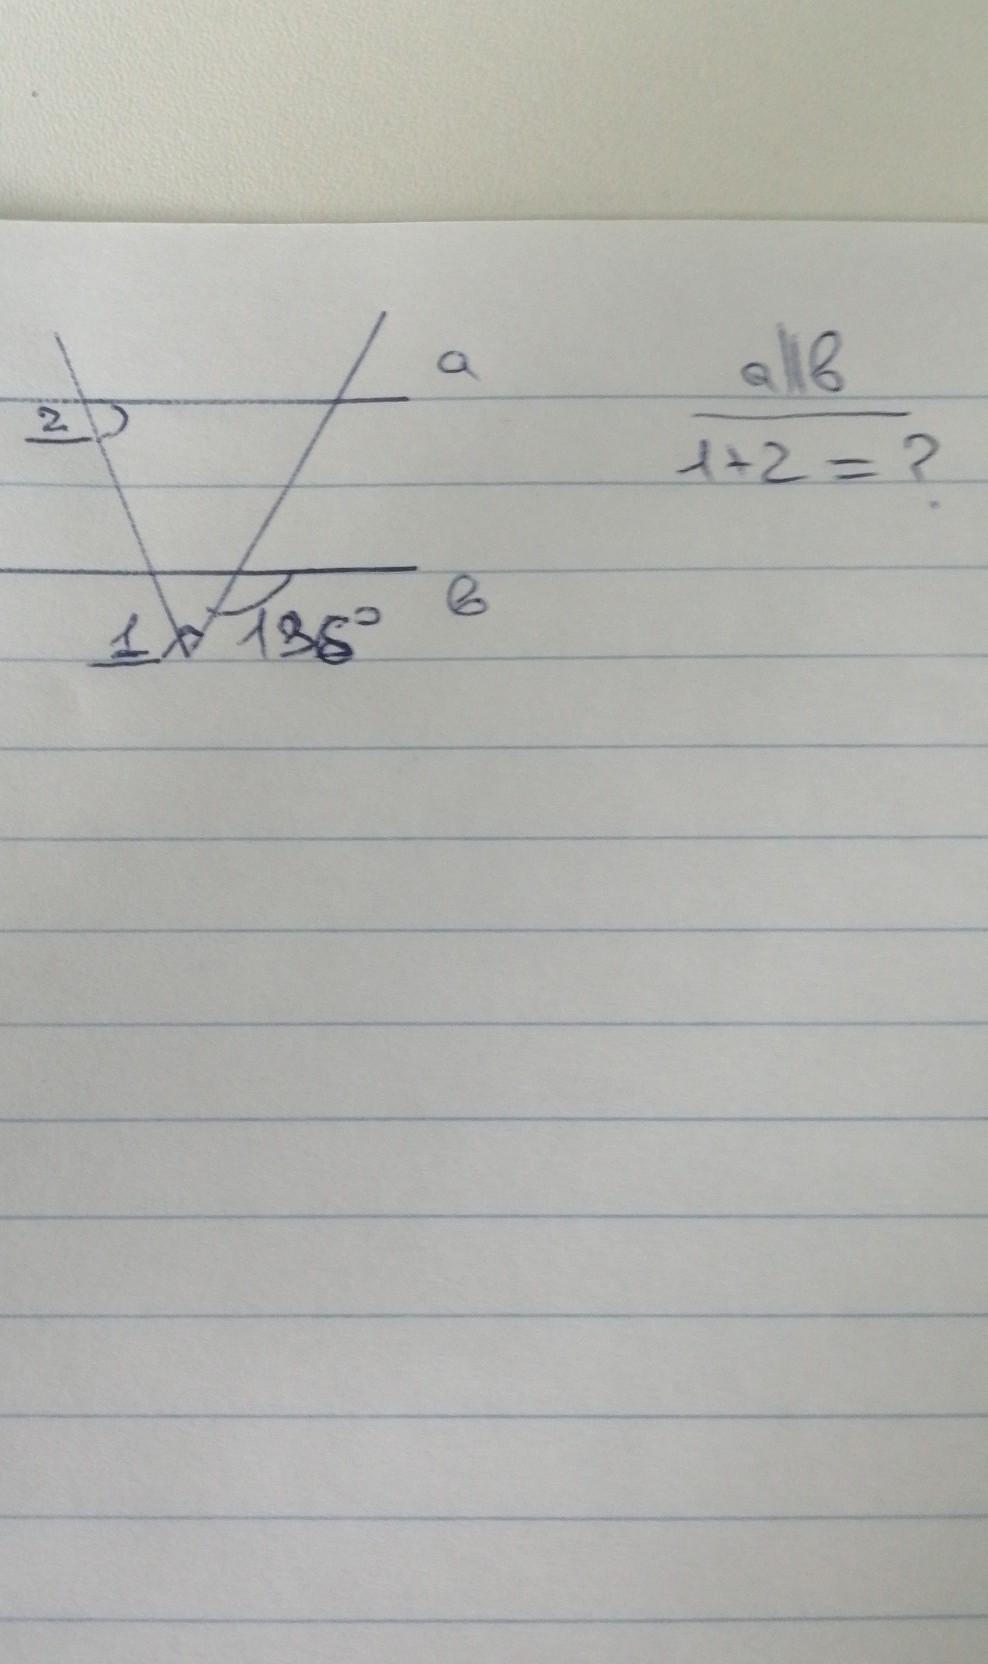 a
a||в
2
1+2=?
в
1